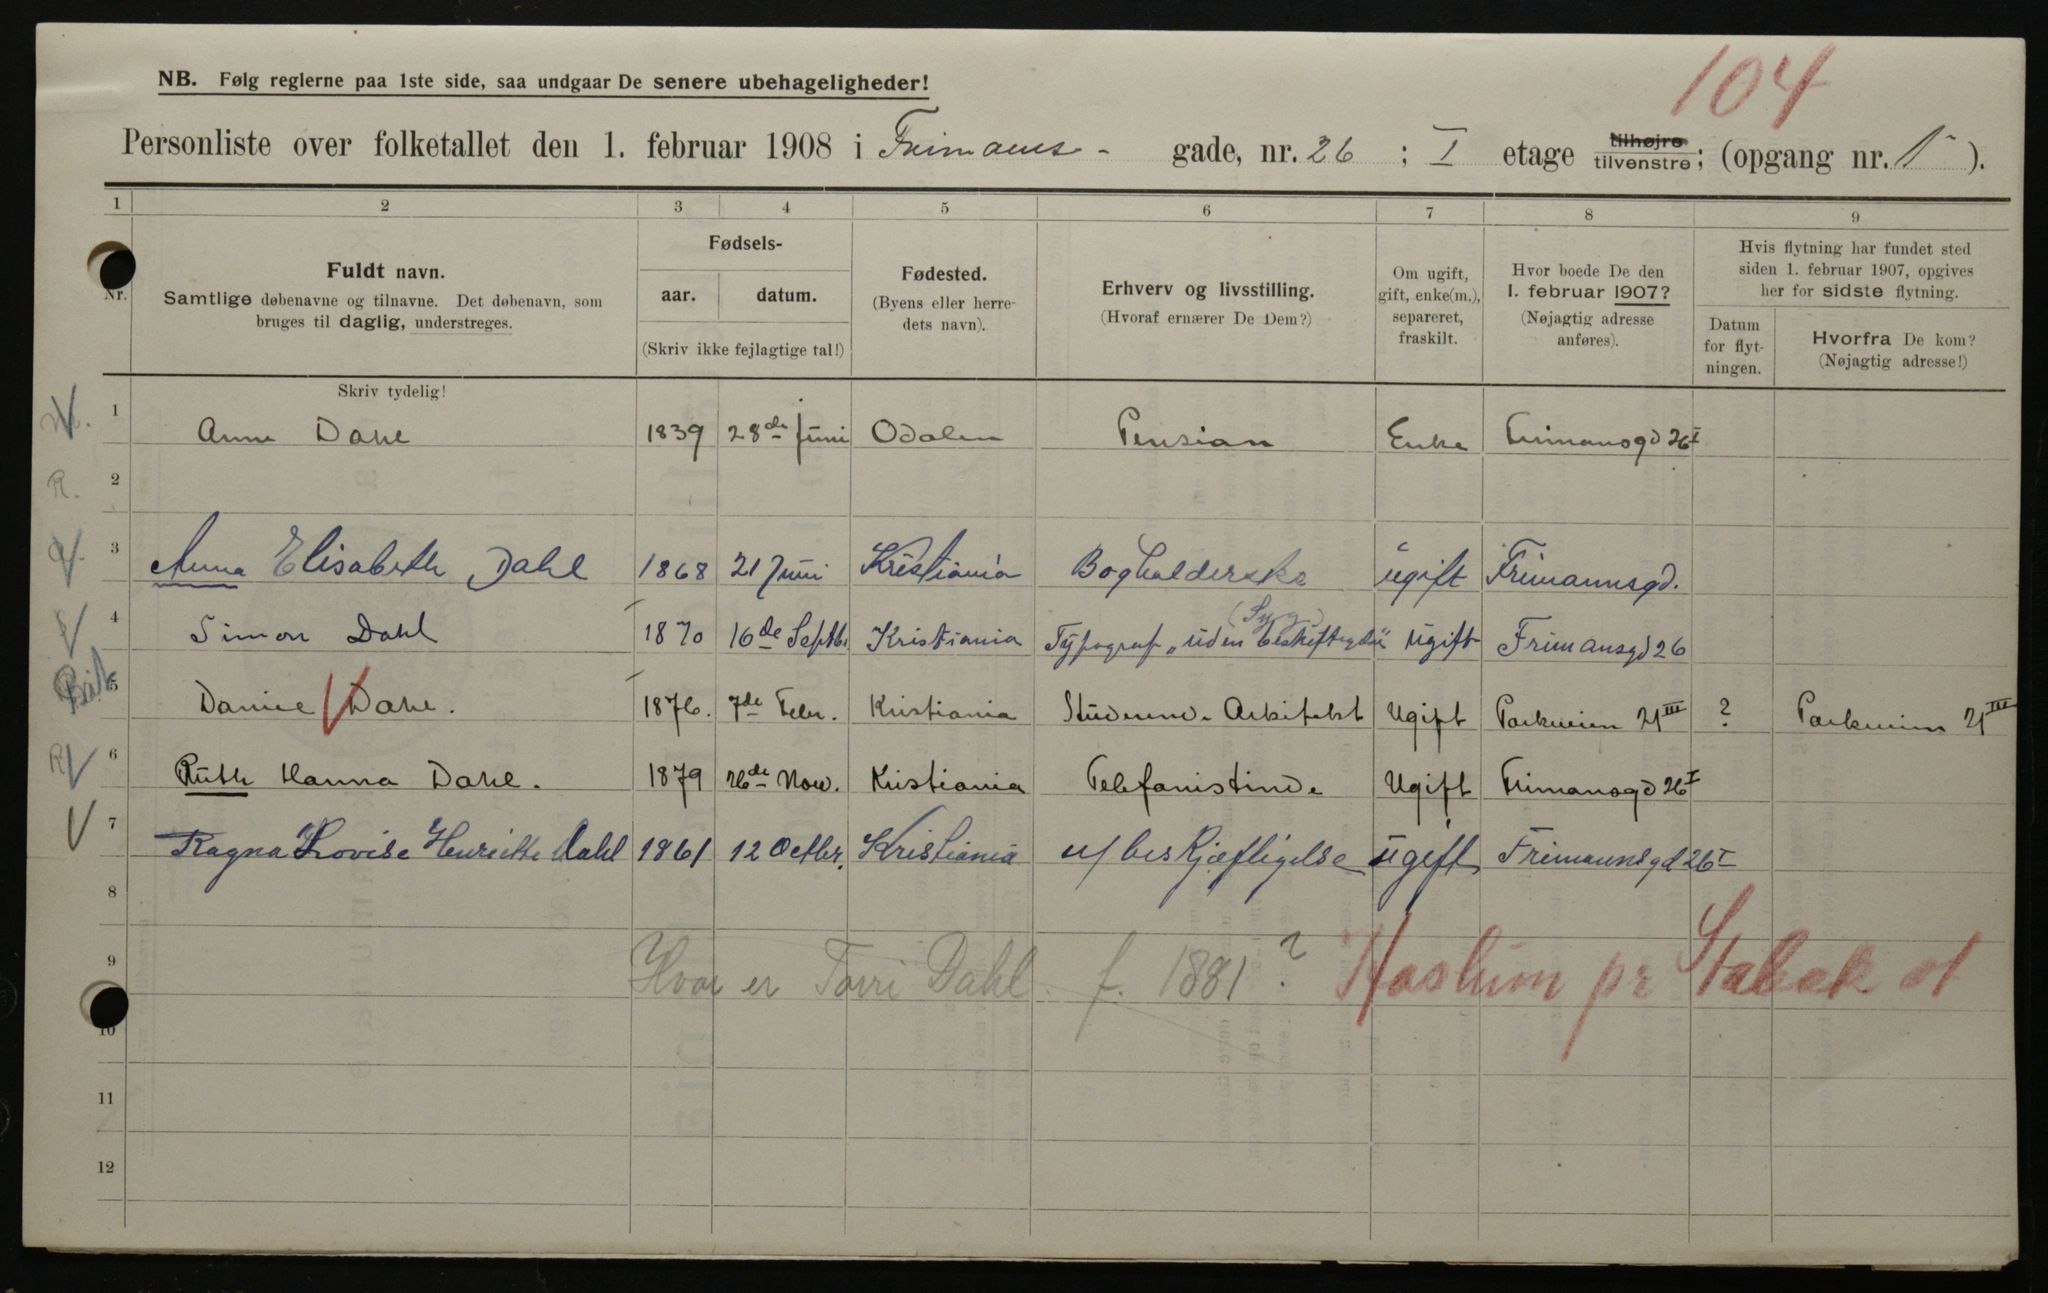 104
NB. Følg reglerne paa 1ste side, saa undgaar De senere ubehageligheder!
Personliste over folketallet den 1. februar 1908 i Frimanns- gade, nr. 26 ; I etage tilhøjre tilvenstre; (opgang nr. 1 ).
1 2 3 4 5 6 7 8 9
Nr.
Fuldt navn.
Samtlige døbenavne og tilnavne. Det døbenavn, som
bruges til daglig, understreges.
Fødsels-
aar. datum.
(Skriv ikke fejlagtige tal!)
Fødested.
(Byens eller herre-
dets navn).
Erhverv og livsstilling.
(Hvoraf ernærer De Dem?)
Om ugift,
gift, enke(m.),
separeret,
fraskilt.
Hvor boede De den
1. februar 1907?
(Nøjagtig adresse
anføres).
Hvis flytning har fundet sted
siden 1. februar 1907, opgives
her for sidste flytning.
Datum
for flyt-
ningen.
Hvorfra De kom?
(Nøjagtig adresse!)
Skriv tydelig!
1 Anne Dahl 1839 28de Juni Odalen Pension Enke Frimansgd 26 I
R. 2
3 Anna Elisabeth Dahl 1868 21 Juni Kristiania Bogholderske ugift Frimannsgd.
(Syg)
4 Simon Dahl 1870 16de Septbr Kristiania Typograf „uden beskiftigelse" Ugift Frimansgd 26
5 Daniel Dahl. 1876. 7de Febr. Kristiania Studerende Arkitekt Ugift Parkveien 21 III ? Parkveien 21 III
R 6 Ruth Hanna Dahl. 1879 26de Nov. Kristiania Telefonistinde Ugift Frimansgd 26 I
7 Ragna Lovise Henriette Dahl 1861 12 Octbr. Kristiania u/ beskjæftigelse ugift Frimannsgd 26 I
8
9 Hvor er Torri Dahl f. 1881? Haslum pr Stabæk st
10
11
12